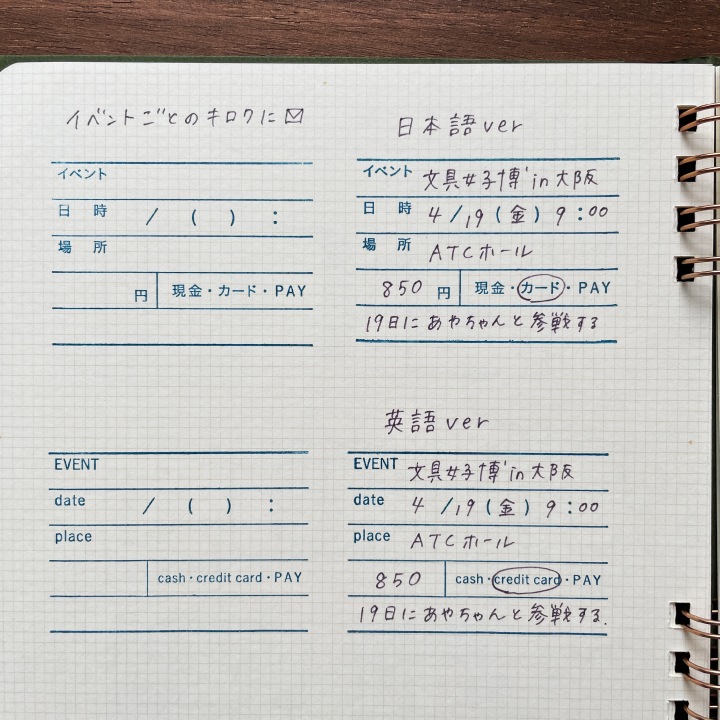 イベントごとのキロクに
日本語ver
イベント
日 時 / ( ) :
場 所
円 現金・カード・PAY
イベント 文具女子博 in 大阪
日 時 4/19(金) 9:00
場 所 ATCホール
850 円 現金・カード・PAY
19日にあやちゃんと参戦する
英語ver
EVENT
date / ( ) :
place
cash・credit card・PAY
EVENT 文具女子博 in 大阪
date 4/19(金) 9:00
place ATCホール
850 cash・credit card・PAY
19日にあやちゃんと参戦する.